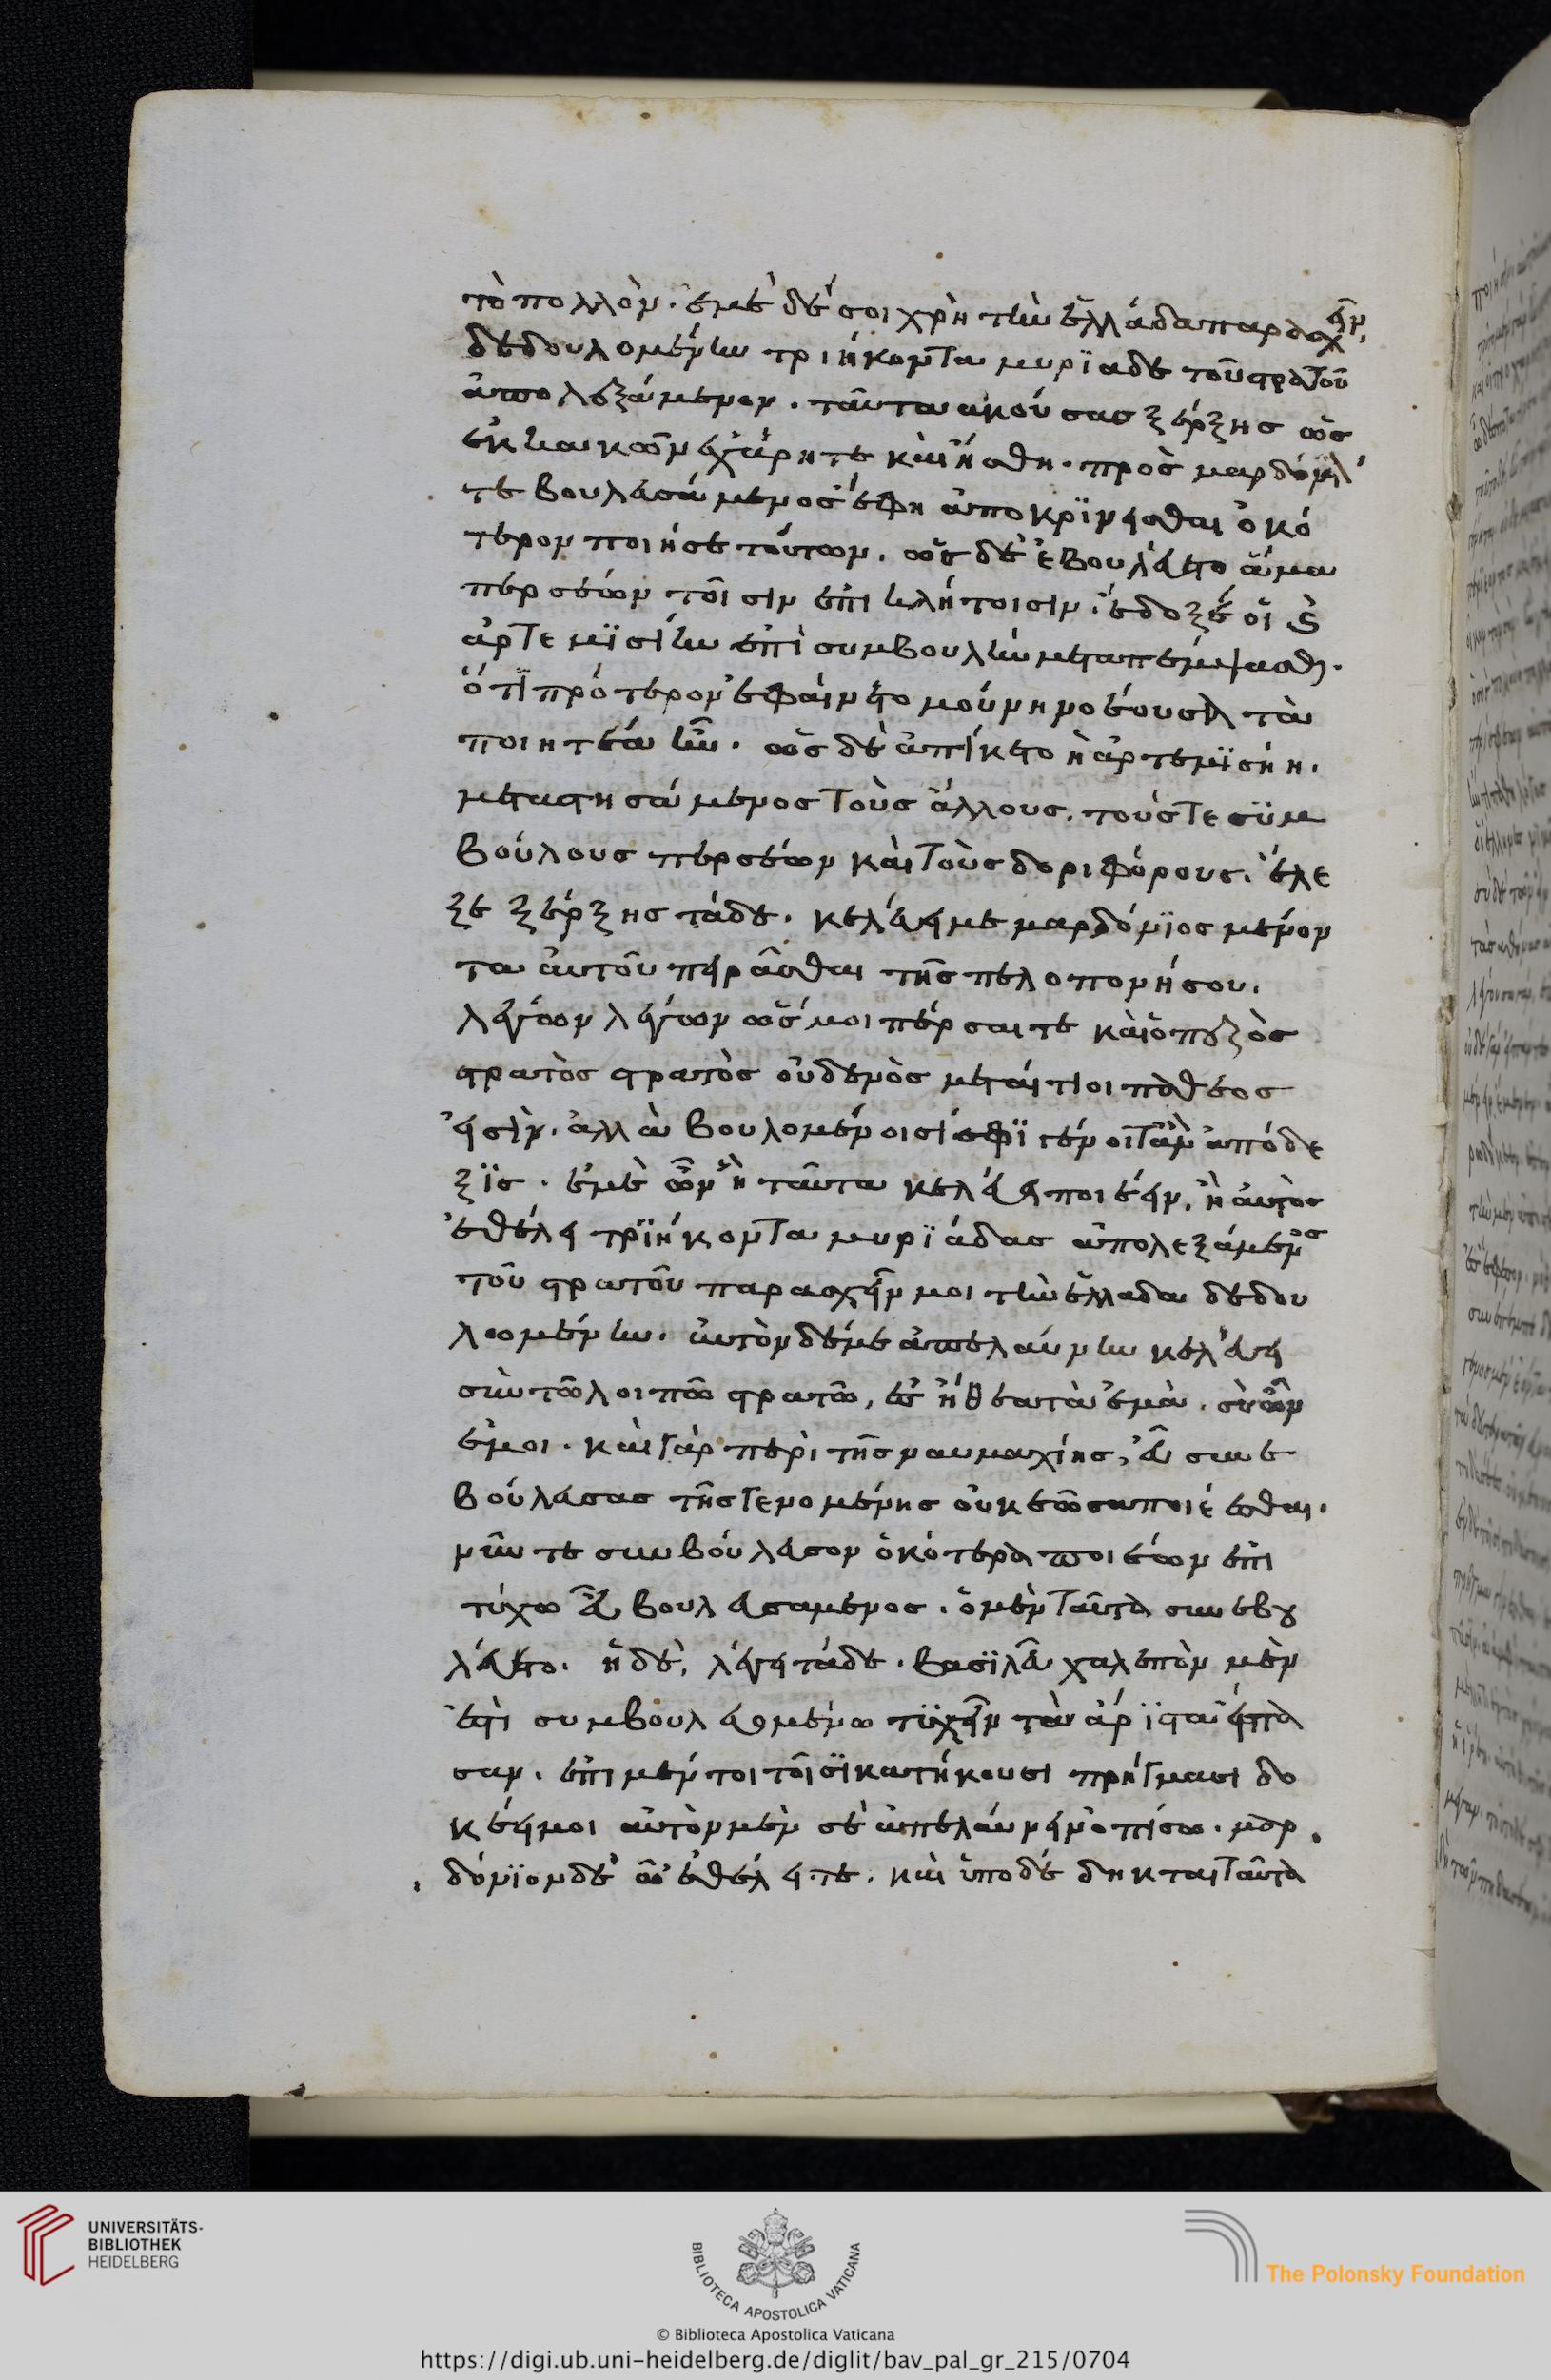 τὸ πολλὸν. ἐμὲ δέ σοι χρὴ τὴν ἑλλάδα παρασχεῖν,
δεδουλομένην τριήκοντα μυριαδε τοῦ στρατοῦ
ἀπολεξάμενον. ταῦτα ἀκούσας ξέρξης ὡς
ἐκ κακῶν ἐχάρη τε καὶ ἥσθη. πρὸς μαρδόνιό
τε βουλευσάμενος ἔφη ἀποκρινεῖσθαι ὁκό
τερον ποιήσε τούτων. ὡς δὲ ἐβουλεύετο ἅμα
περσέων τοῖσιν ἐπικλήτοισιν. ἔδοξέ οἱ καὶ
ἀρτεμισίην ἐπὶ συμβουλὴν μεταπέμψασθαι.
ὅτι πρότερον ἐφαίνετο μούνη νοέουσα τὰ
ποιητέα ἦν. ὡς δὲ ἀπίκετο ἡ ἀρτεμισίη.
μεταστησάμενος τοὺς ἄλλους. τούς τε συμ
βούλους περσέων καὶ τοὺς δοριφόρους. ἔλε
ξε ξέρξης τάδε. κελεύει με μαρδόνιος μένον
τα αὐτοῦ πειρᾶσθαι τῆς πελοπονήσου.
λέγων λέγων ὥς μοι πέρσαι τε καὶ ὁ πεζὸς
στρατὸς στρατὸς οὐδενὸς μεταίτιοι πάθεος
εἰσὶν. ἀλλὰ βουλομένοισί σφι γένοιτ' ἂν ἀπόδε
ξις. ἐμὲ ὦν ἢ ταῦτα κελεύει ποιέειν, ἢ αὐτὸς
ἐθέλει τριήκοντα μυριάδας ἀπολεξάμενος
τοῦ στρατοῦ παρασχεῖν μοι τὴν ἑλλαδα δεδου
λωμένην. αὐτὸν δέ με ἀπελαύνην κελεύει
σὺν τῶ λοιπῶ στρατῶ, ἐς ἤθεα τὰ ἐμὰ. σὺ ὦν
ἐμοι. καὶ γὰρ περὶ τῆς ναυμαχίης, εὖ συνε
βούλευσας τῆς γενομένης οὐκ ἐῶσα ποιέεσθαι.
νῦν τε συνβούλευσον ὁκότερα ποιέων ἐπι
τύχω εὖ βουλευσαμενος. ὁ μὲν ταῦτα συνεβου
λεύετο. ἡ δὲ, λέγει τάδε. βασιλεῦ χαλεπὸν μὲν
ἐστὶ συμβουλευομένω τυχεῖν τὰ ἄριστα εἴπα
σαν. ἐπι μέντοι τοῖσι κατήκουσι πρήγμασι δο
κέει μοι αὐτὸν μὲν σὲ ἀπελαύνειν ὀπίσω. μαρ
δόνιον δὲ ὦ ἐθέλει τε. καὶ ὑποδέδηκται ταῦτα
UNIVERSITÄTS-
BIBLIOTHEK
HEIDELBERG
BIBLIOTECA APOSTOLICA VATICANA
The Polonsky Foundation
© Biblioteca Apostolica Vaticana
https://digi.ub.uni-heidelberg.de/diglit/bav_pal_gr_215/0704